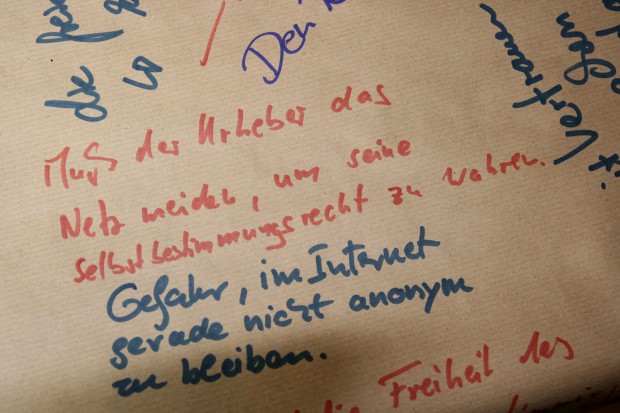 die
Den
Vertrauen
Muß der Urheber das
Netz meiden, um seine
selbstbestimmungsrecht zu wahren.
Gefahr, im Internet
gerade nicht anonym
zu bleiben.
die Freiheit des